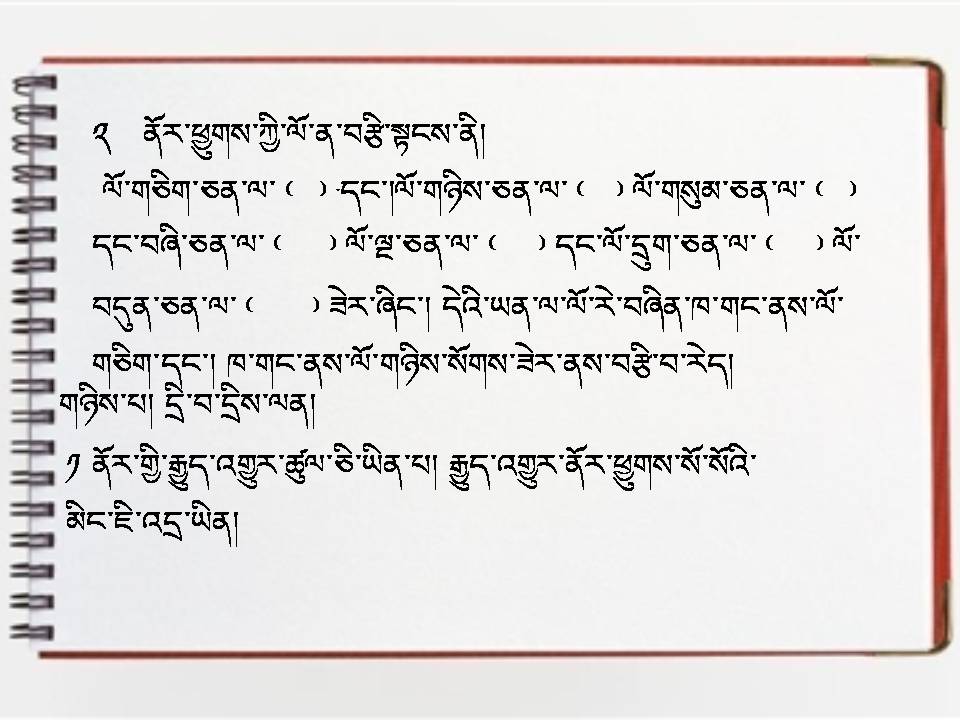 ༢ ནོར་ཕྱུགས་ཀྱི་ལོ་ན་བརྩི་སྟངས་ནི།
ལོ་གཅིག་ཅན་ལ་( )དང་།ལོ་གཉིས་ཅན་ལ་( )ལོ་གསུམ་ཅན་ལ་( )
དང་བཞི་ཅན་ལ་( )ལོ་ལྔ་ཅན་ལ་( )དང་ལོ་དྲུག་ཅན་ལ་( )ལོ་
བདུན་ཅན་ལ་( )ཟེར་ཞིང་། དེའི་ཡན་ལ་ལོ་རེ་བཞིན་ཁ་གང་ནས་ལོ་
གཅིག་དང་། ཁ་གང་ནས་ལོ་གཉིས་སོགས་ཟེར་ནས་བརྩི་བ་རེད།
གཉིས་པ། དྲི་བ་དྲིས་ལན།
༡ ནོར་གྱི་རྒྱུད་འགྱུར་ཚུལ་ཅི་ཡིན་པ། རྒྱུད་འགྱུར་ནོར་ཕྱུགས་སོ་སོའི་
མིང་ཇི་འདྲ་ཡིན།